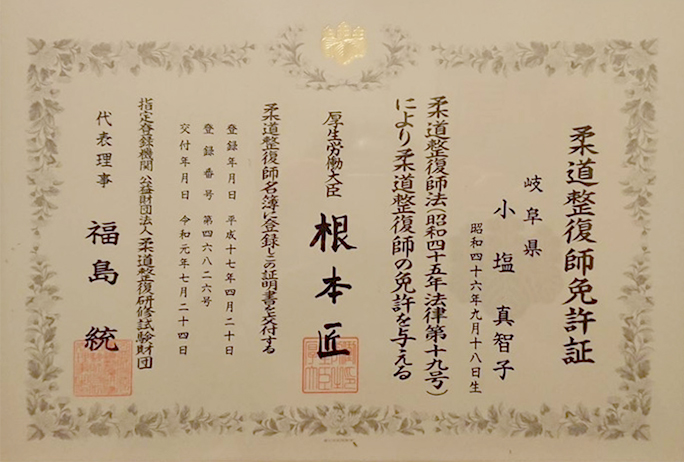 柔道整復師免許証
岐阜県
小塩真智子
昭和四十六年九月十八日生
柔道整復師法(昭和四十五年法律第十九号)
により柔道整復師の免許を与える
厚生労働大臣 根本匠
柔道整復師名簿に登録しこの証明書を交付する
登録年月日 平成十七年四月二十日
登録番号 第四六八二六号
交付年月日 令和元年七月二十四日
指定登録機関 公益財団法人柔道整復研修試験財団
代表理事 福島統